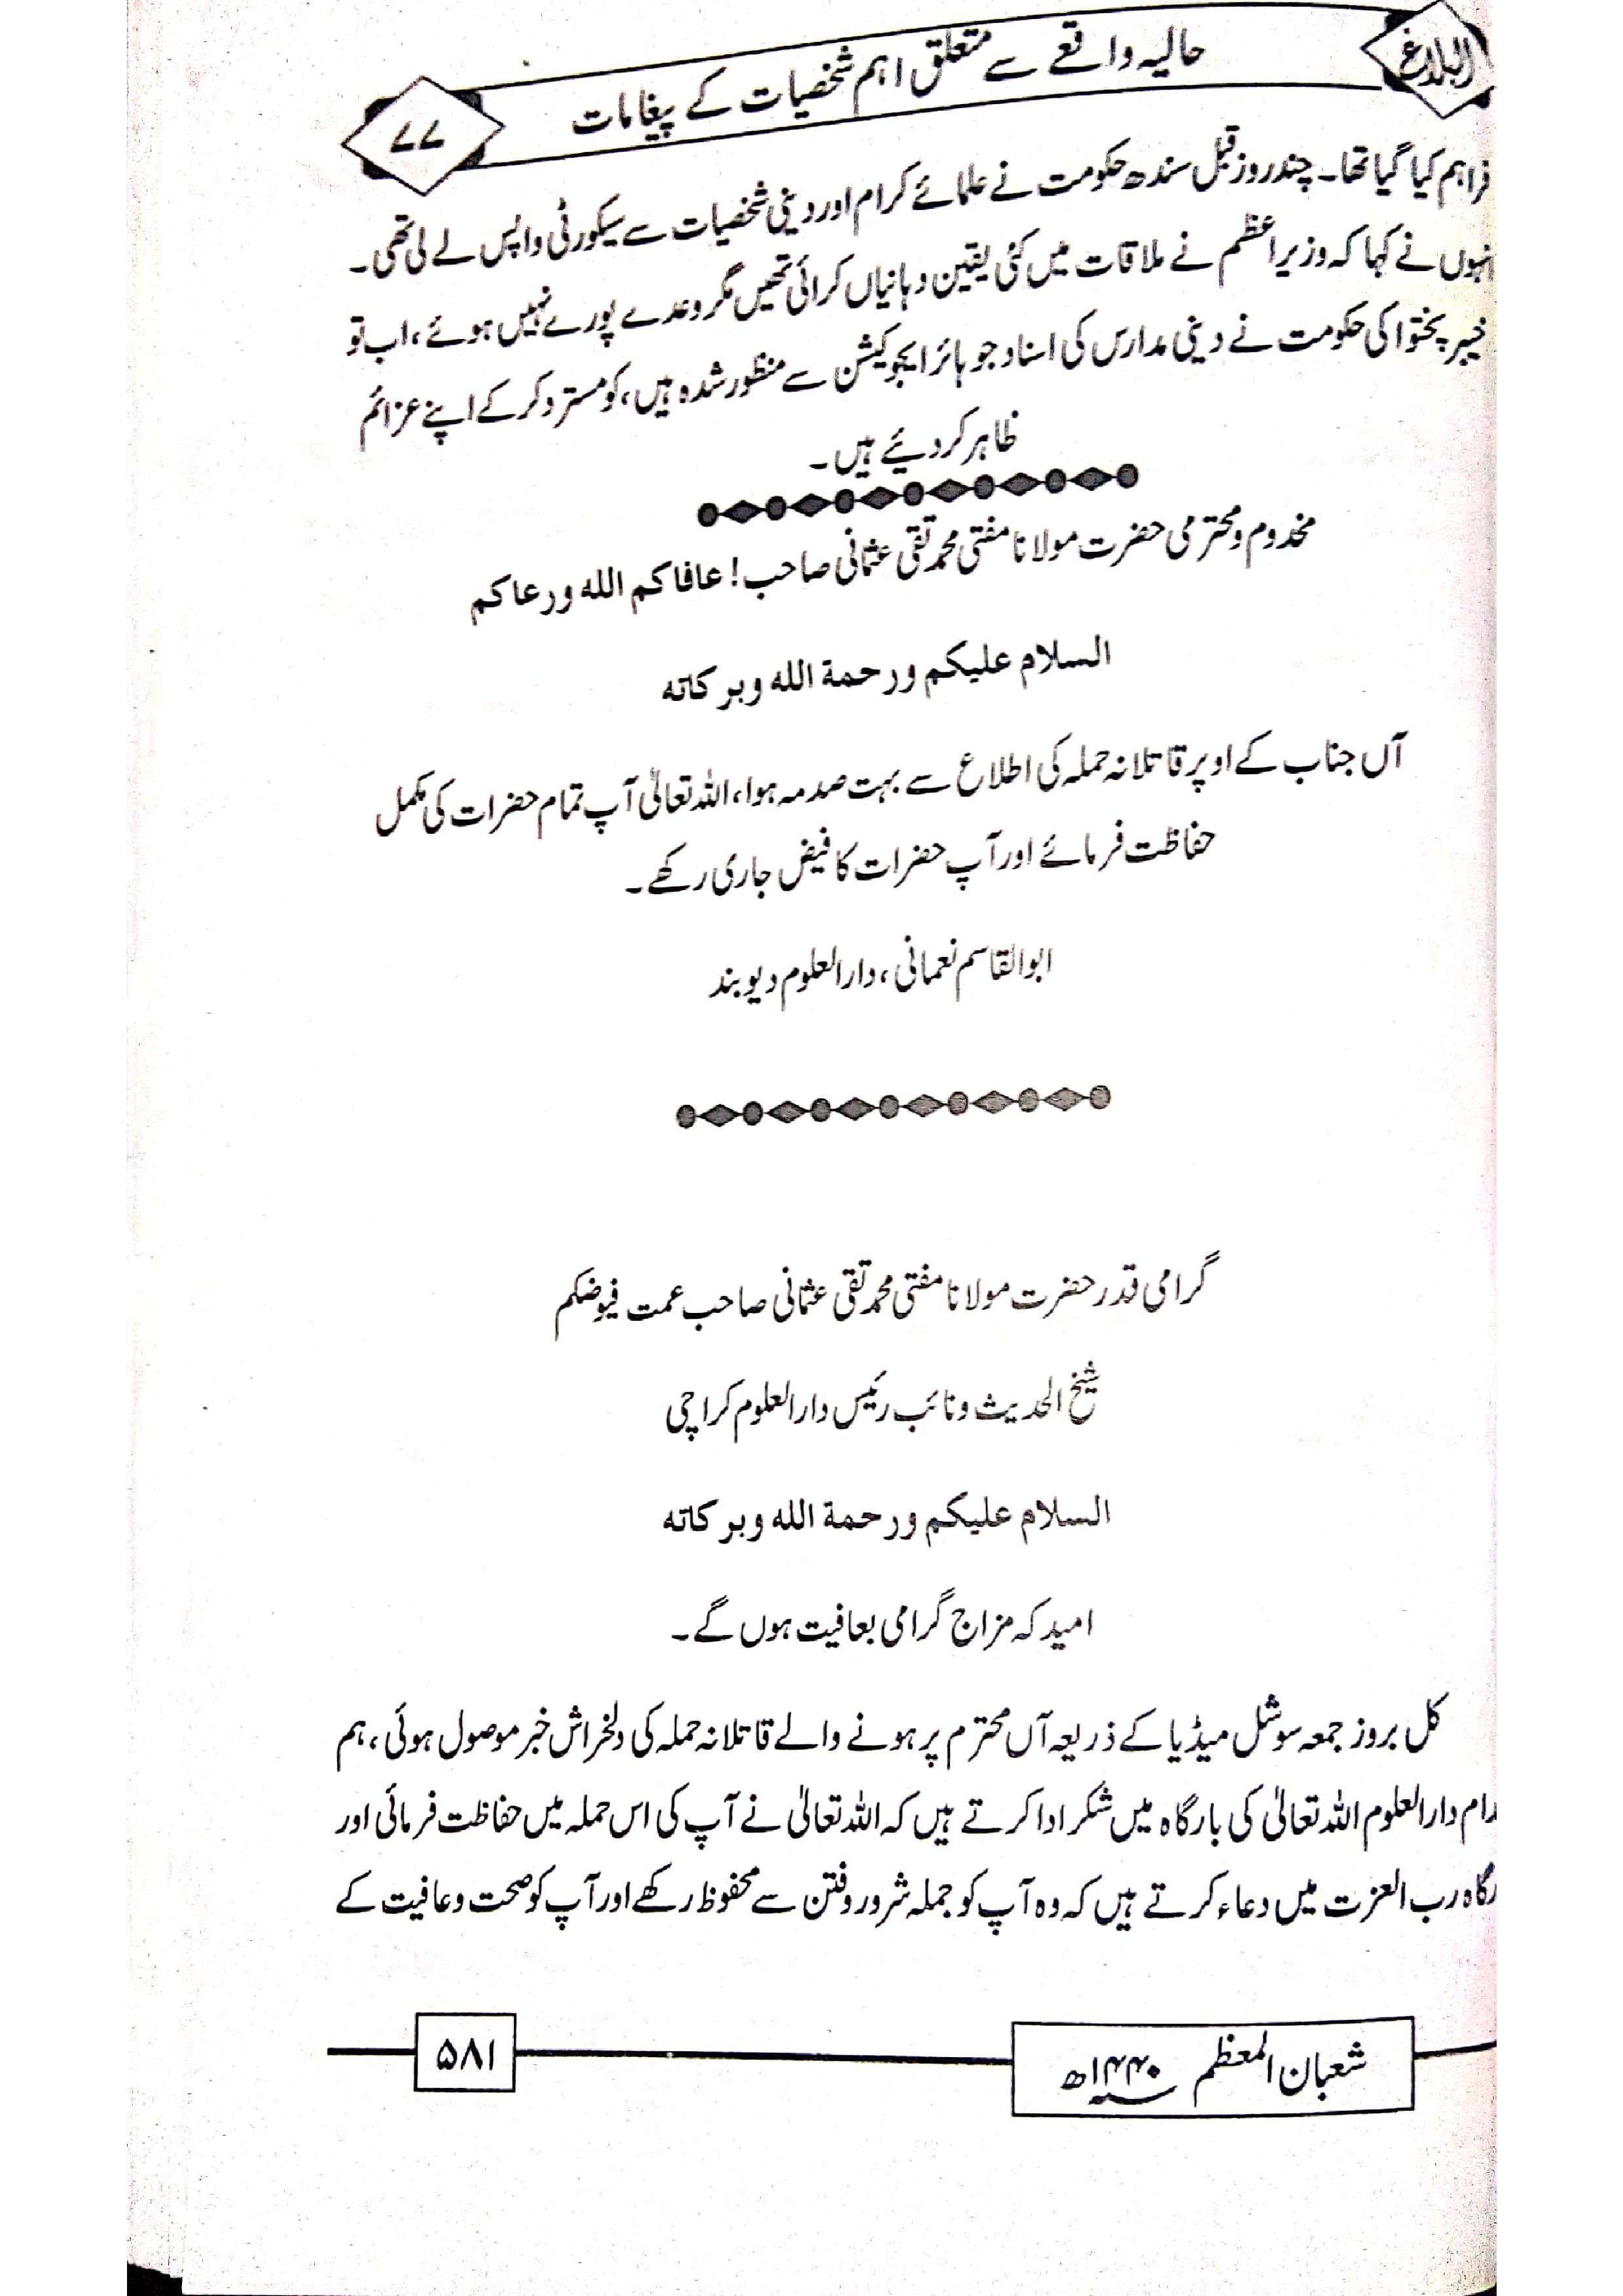 البلاغ
حالیہ واقعے سے متعلق اہم شخصیات کے پیغامات
۷۷
فراہم کیا گیا تھا۔ چند روز قبل سندھ حکومت نے علمائے کرام اور دینی شخصیات سے سیکورٹی واپس لے لی تھی۔
انہوں نے کہا کہ وزیراعظم نے ملاقات میں کئی یقین دہانیاں کرائی تھیں مگر وعدے پورے نہیں ہوئے، اب تو
خیبر پختوا کی حکومت نے دینی مدارس کی اسناد جو ہائر ایجوکیشن سے منظور شدہ ہیں، کو مسترد کر کے اپنے عزائم
ظاہر کر دیئے ہیں۔
مخدوم و محترمی حضرت مولانا مفتی محمد تقی عثمانی صاحب! عافاکم الله ورعاکم
السلام علیکم ورحمة الله وبرکاته
آں جناب کے اوپر قاتلانہ حملہ کی اطلاع سے بہت صدمہ ہوا، اللہ تعالیٰ آپ تمام حضرات کی مکمل
حفاظت فرمائے اور آپ حضرات کا فیض جاری رکھے۔
ابوالقاسم نعمانی، دارالعلوم دیوبند
گرامی قدر حضرت مولانا مفتی محمد تقی عثمانی صاحب عمت فیوضکم
شیخ الحدیث و نائب رئیس دارالعلوم کراچی
السلام علیکم ورحمة الله وبرکاته
امید کہ مزاج گرامی بعافیت ہوں گے۔
کل بروز جمعہ سوشل میڈیا کے ذریعہ آں محترم پر ہونے والے قاتلانہ حملہ کی دلخراش خبر موصول ہوئی، ہم
دارالعلوم اللہ تعالیٰ کی بارگاہ میں شکر ادا کرتے ہیں کہ اللہ تعالیٰ نے آپ کی اس حملہ میں حفاظت فرمائی اور
رب العزت میں دعاء کرتے ہیں کہ وہ آپ کو جملہ شرور و فتن سے محفوظ رکھے اور آپ کو صحت و عافیت کے
شعبان المعظم ۱۴۴۰ھ
۵۸۱